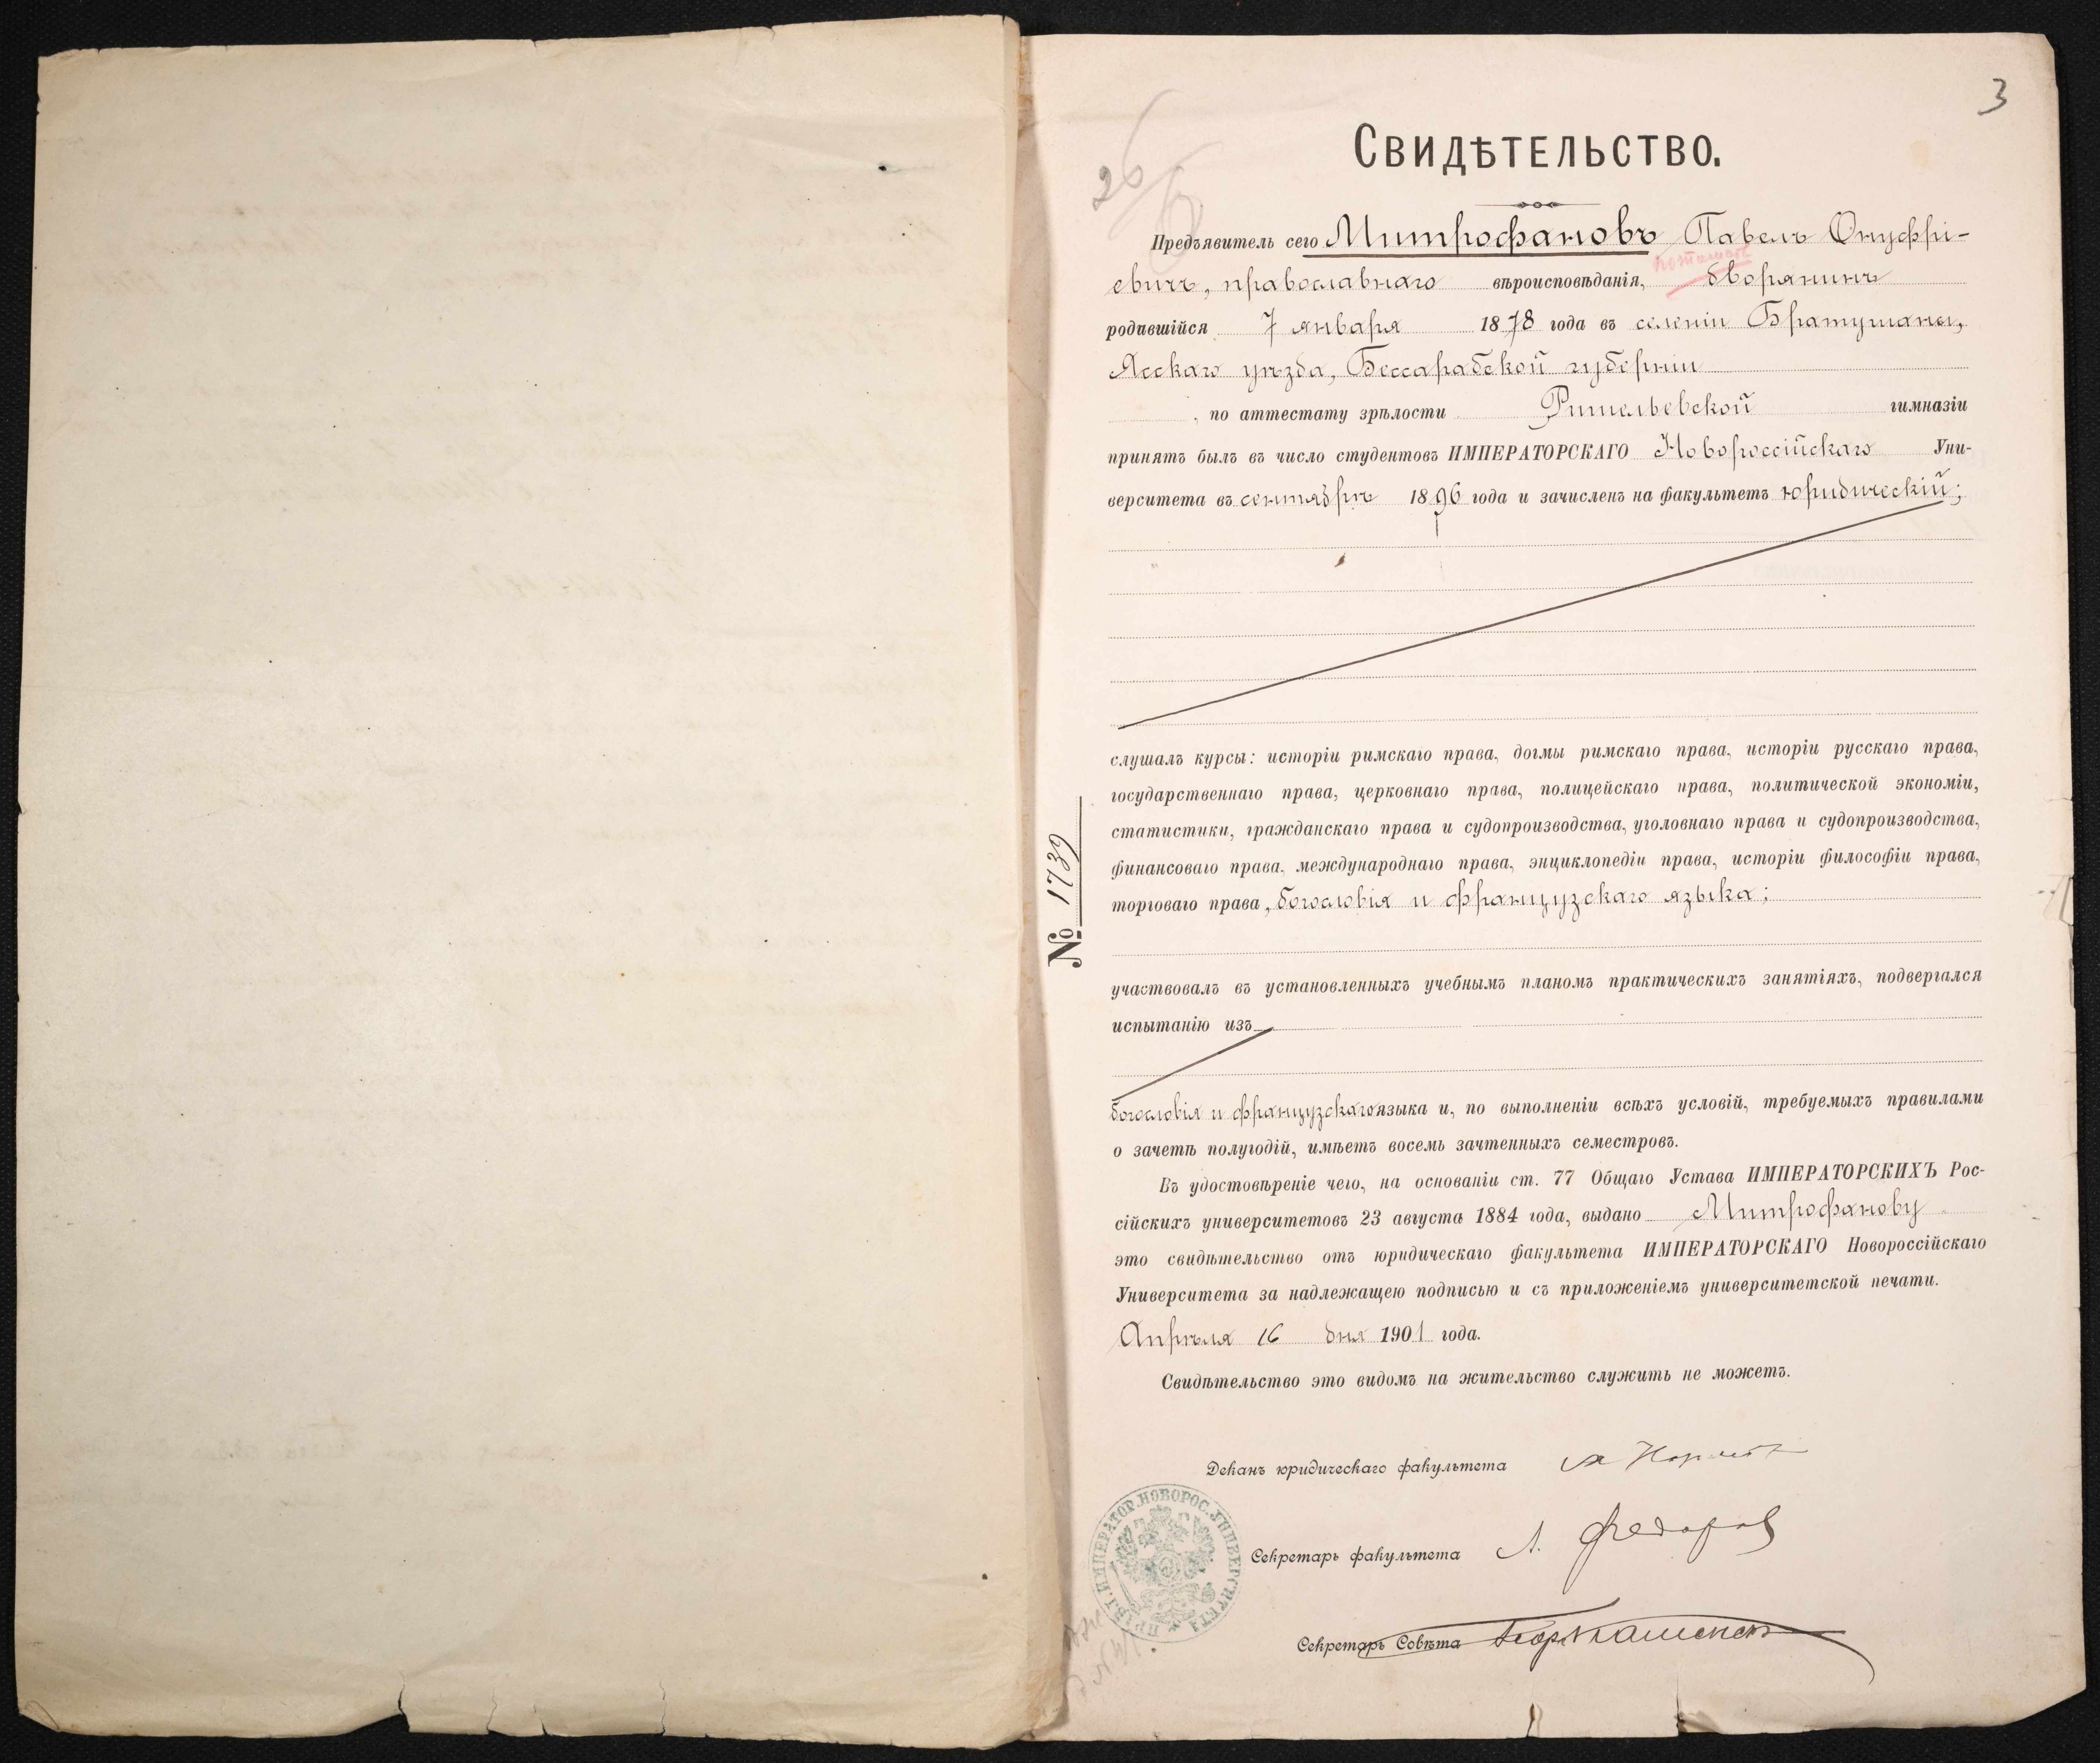 3
26
Свидѣтельство.
Предъявитель сего Митрофановъ Павелъ Онуфрі-
евичъ, православнаго вѣроисповѣданія, дворянинъ
родившійся 7 января 1878 года въ селеніи Братушаны,
Ясскаго уѣзда, Бессарабской губерніи
, по аттестату зрѣлости Ришельевской гимназіи
принятъ былъ въ число студентовъ ИМПЕРАТОРСКАГО Новороссійскаго Уни-
верситета въ сентябрѣ 1896 года и зачисленъ на факультетъ юридическій;
слушалъ курсы: исторіи римскаго права, догмы римскаго права, исторіи русскаго права,
государственнаго права, церковнаго права, полицейскаго права, политической экономіи,
статистики, гражданскаго права и судопроизводства, уголовнаго права и судопроизводства,
финансоваго права, международнаго права, энциклопедіи права, исторіи философіи права,
торговаго права, богословія и французскаго языка;
№ 1739
участвовалъ въ установленныхъ учебнымъ планомъ практическихъ занятіяхъ, подвергался
испытанію изъ
богословія и французскаго языка и, по выполненіи всѣхъ условій, требуемыхъ правилами
о зачетѣ полугодій, имѣетъ восемь зачтенныхъ семестровъ.
Въ удостовѣреніе чего, на основаніи ст. 77 Общаго Устава ИМПЕРАТОРСКИХЪ Рос-
сійскихъ университетовъ 23 августа 1884 года, выдано Митрофанову
это свидѣтельство отъ юридическаго факультета ИМПЕРАТОРСКАГО Новороссійскаго
Университета за надлежащею подписью и съ приложеніемъ университетской печати.
Апрѣля 16 дня 1901 года.
Свидѣтельство это видомъ на жительство служить не можетъ.
Деканъ юридическаго факультета
Секретарь факультета А. Федоров
Секретарь Совѣта
ИМПЕРАТОР. НОВОРОС. УНИВЕРСИТЕТА